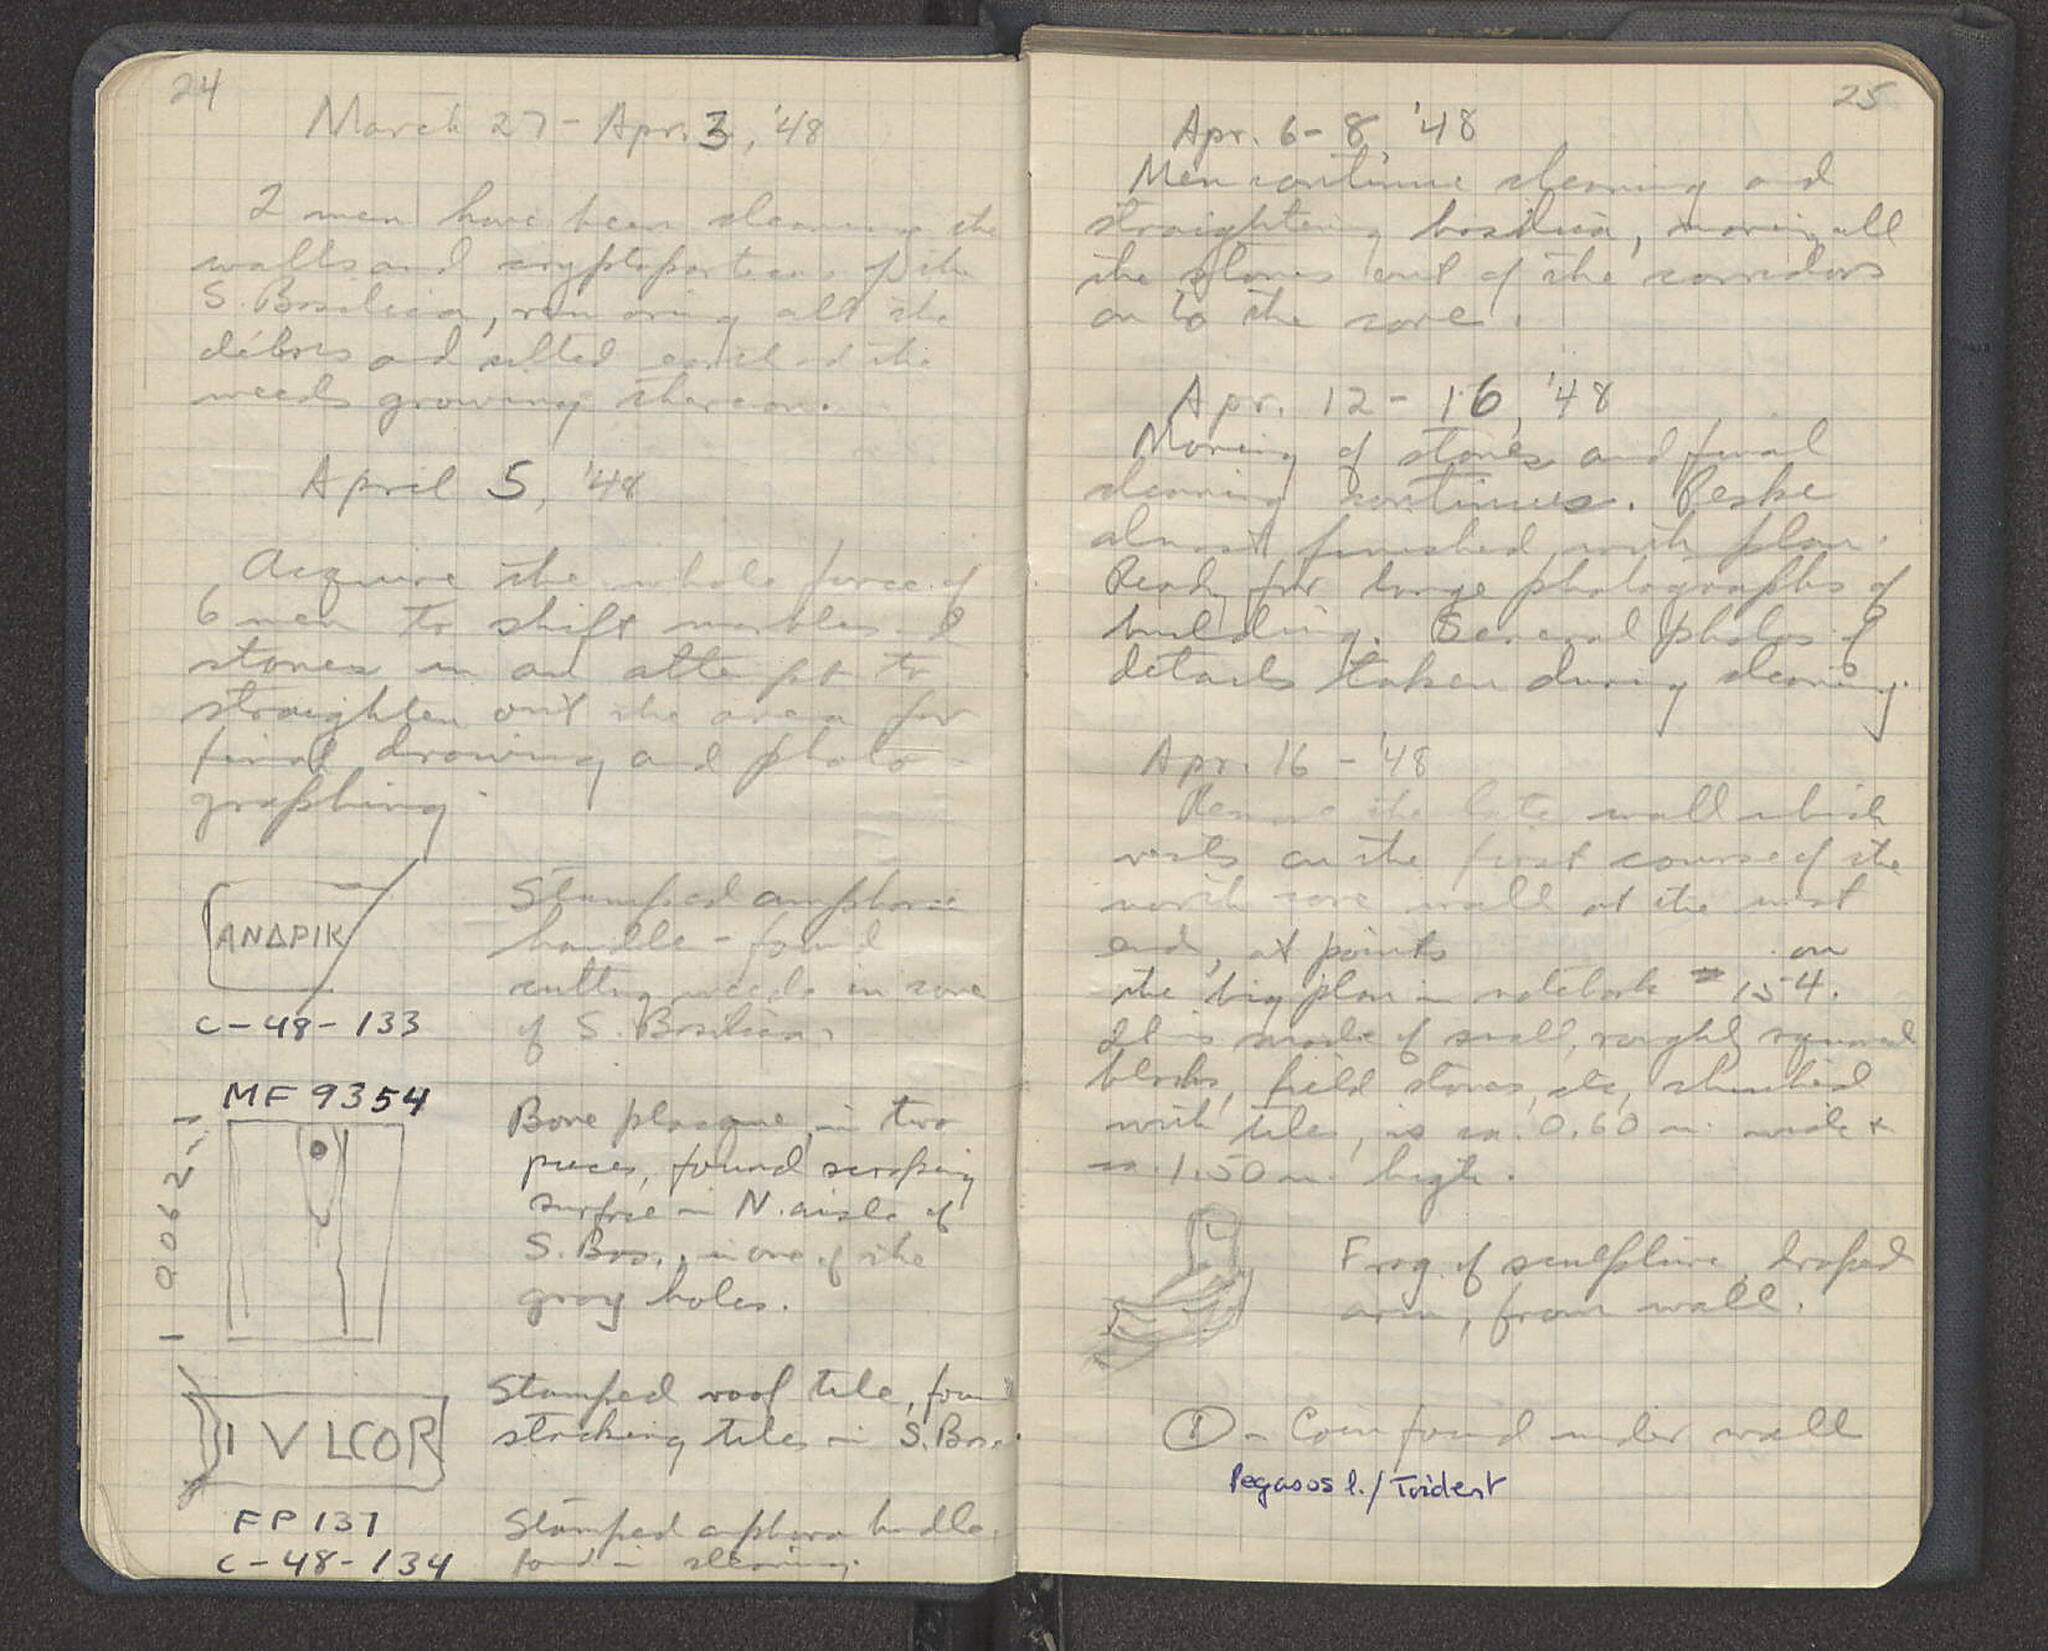 24
March 27 - Apr. 3, '48
2 men have been cleaning the
walls and cryptoporticus of the
S. Basilica, removing all the
débris and silted earth and the
weeds growing thereon.
April 5, '48
Acquire the whole force of
6 men to shift marbles and
stones in an attempt to
straighten out the area for
final drawing and photo-
graphing.
ANΔΡΙΚ
C-48-133
Stamped amphora
handle - found
cutting weeds in core
of S. Basilica.
MF 9354
0.062
Bone plaque, in two
pieces, found scraping
surface in N. aisle of
S. Bas., in one of the
gray holes.
I V LCOR
FP 137
Stamped roof tile, found
stacking tiles in S. Bas.
C-48-134
Stamped amphora handle.
found in cleaning.
25
Apr. 6-8, '48
Men continue cleaning and
straightening basilica, moving all
the stones out of the corridors
on to the core.
Apr. 12-16, '48
Moving of stones and final
cleaning continues. Peske
almost finished with plan.
Ready for large photographs of
building. Several photos of
details taken during cleaning.
Apr. 16 - '48
Remove the late wall which
rests on the first course of the
north core wall at the west
end, at points on
the big plan in notebook # 154.
It is made of small, roughly squared
blocks, field stones, etc, chinked
with tiles, is ca. 0.60 m. wide +
ca. 1.50 m. high.
Frag. of sculpture, draped
arm, from wall.
① - Coin found under wall
Pegasos l./Trident